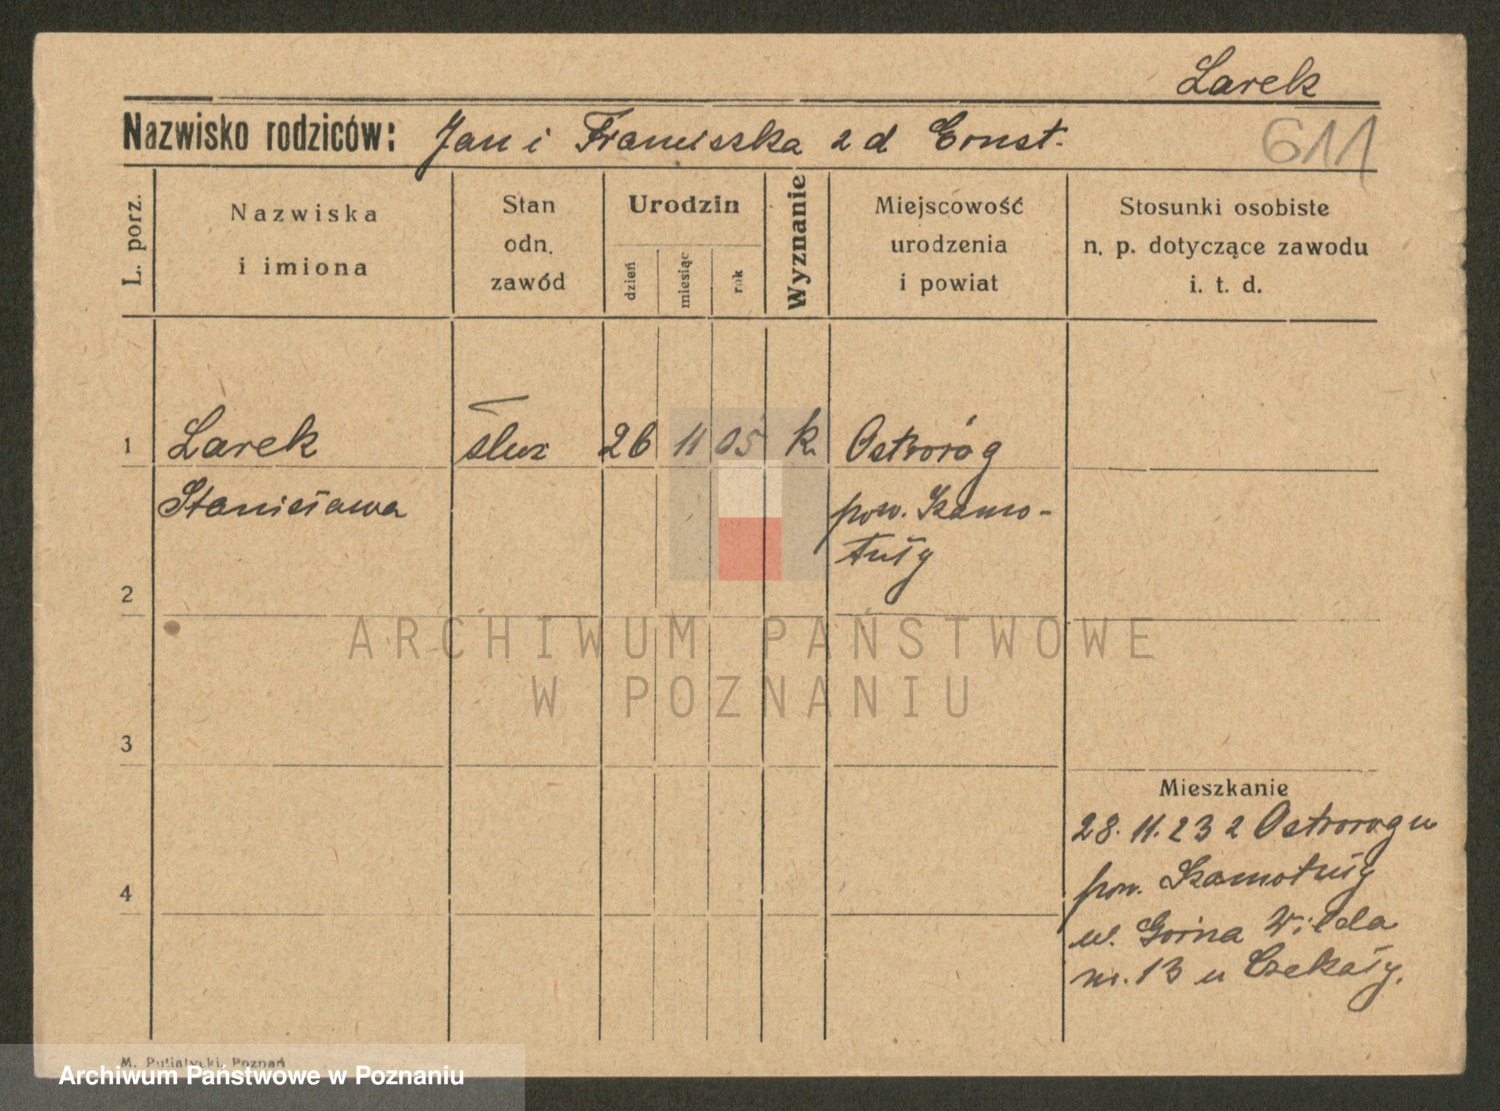 Larek
Nazwisko rodziców: Jan i Franciszka z d Ernst.
611
L. porz.
Nazwiska
i imiona
Stan
odn.
zawód
Urodzin
dzień
miesiąc
rok
Wyznanie
Miejscowość
urodzenia
i powiat
Stosunki osobiste
n. p. dotyczące zawodu
i. t. d.
1 Larek służ 26 11 05 k Ostroróg
Stanisława pow. Szamo-
tuły
2
ARCHIWUM PAŃSTWOWE
W POZNANIU
3
Mieszkanie
28.11.23 z Ostroroga
pow. Szamotuły
4
w. Górna Wilda
nr. 13 u Czekały.
M. Putiatycki, Poznań
Archiwum Państwowe w Poznaniu